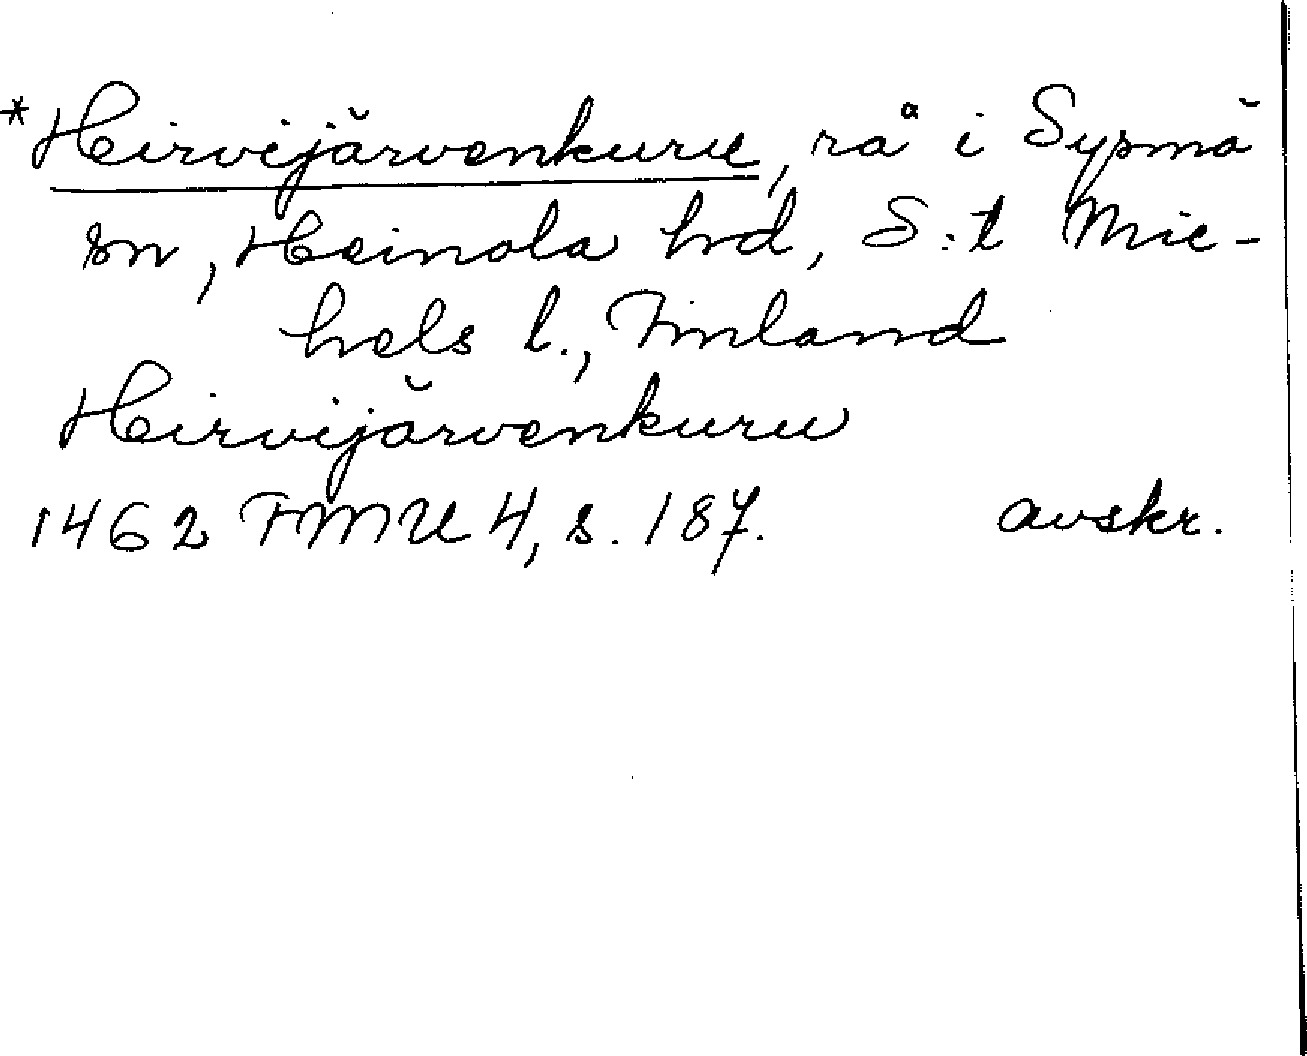 *Hirvijärvenkuru, rå i Sysmä
sn, Heinola hrd, S:t Mic-
hels l., Finland
Hirvijärvenkuru
1462 FMU 4, s. 187. avskr.